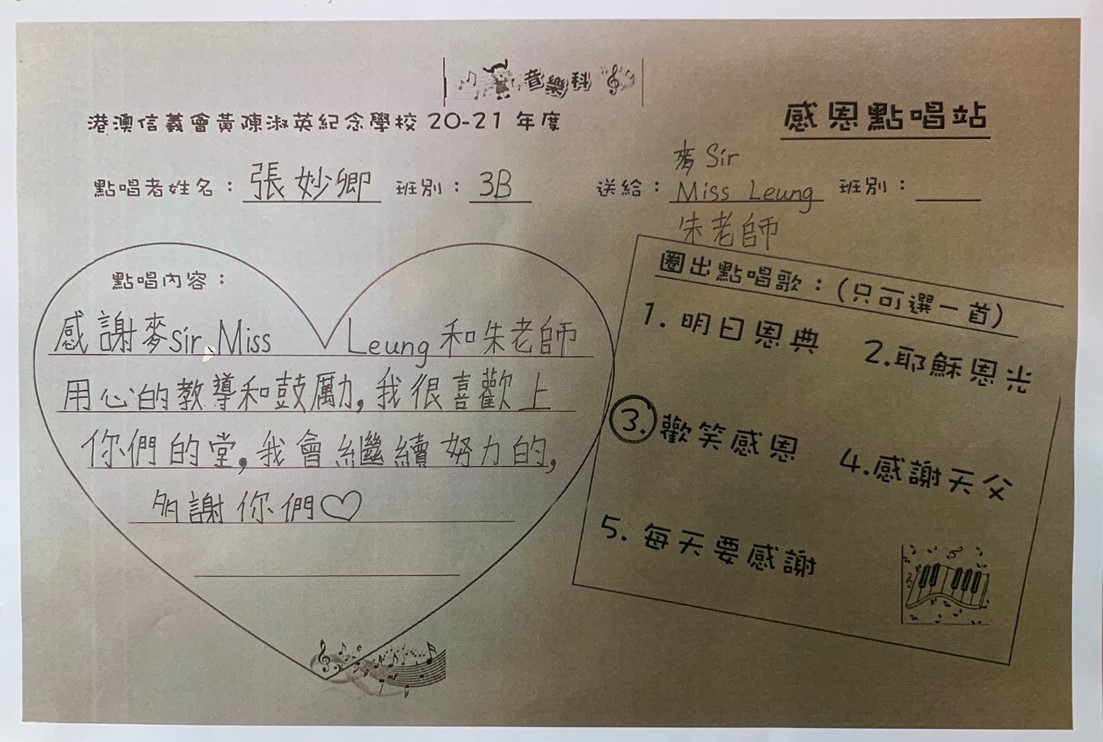 音樂科
港澳信義會黃陳淑英紀念學校 20-21 年度
感恩點唱站
點唱者姓名：張妙卿 班別：3B 送給：麥 Sir
Miss Leung 班別：
朱老師
點唱內容：
感謝麥Sir, Miss Leung 和朱老師
用心的教導和鼓勵, 我很喜歡上
你們的堂, 我會繼續努力的,
多謝你們♡
圈出點唱歌：(只可選一首)
1. 明日恩典 2.耶穌恩光
3. 歡笑感恩 4.感謝天父
5. 每天要感謝